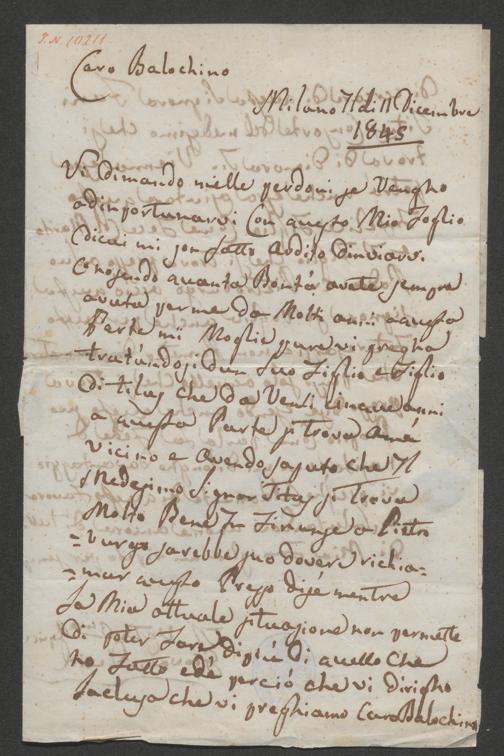 I.N. 10211
Caro Balochino
Milano 71 di 11 Dicembre
1845
Vi dimando mille perdoni se Vengho
adimportunarvi Con questo Mio Foglio
di cui mi son fatto ardito dinviarvi.
Conosendo quanta Bontá avete sempre
avuta per me da Molti anni a questa
Parte mi Moglie pure vi pregha
tratandosi dun suo Figlio e Figlio
Di che da Venti cinque anni
a questa Parte si trova a me
Vicino e Avendo saputo che Il
Medesimo Signor Titus si trova
Molto Bene In Finanze a Pietro
=Burgo sarebbe suo dovere richia=
=mar questo Pregodizé mentre
la Mia attuale situazione non permette
Di poter Fare di piú Di quello Che
ho Fatto ed é perció che vi dirigho
lacclusa che vi preghiamo Caro Balochino